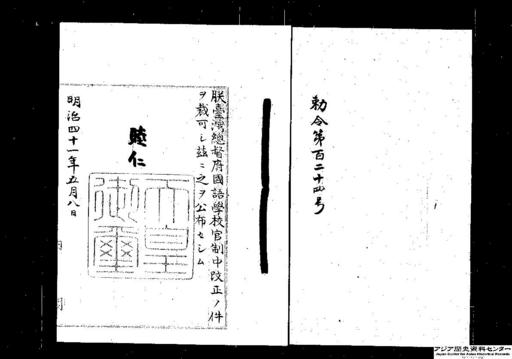 勅令第百二十四号
朕臺灣總督府國語學校官制中改正ノ件
ヲ裁可シ茲ニ之ヲ公布セシム
睦仁
天皇御璽
明治四十一年五月八日
アジア歴史資料センター
Japan Center for Asian Historical Records